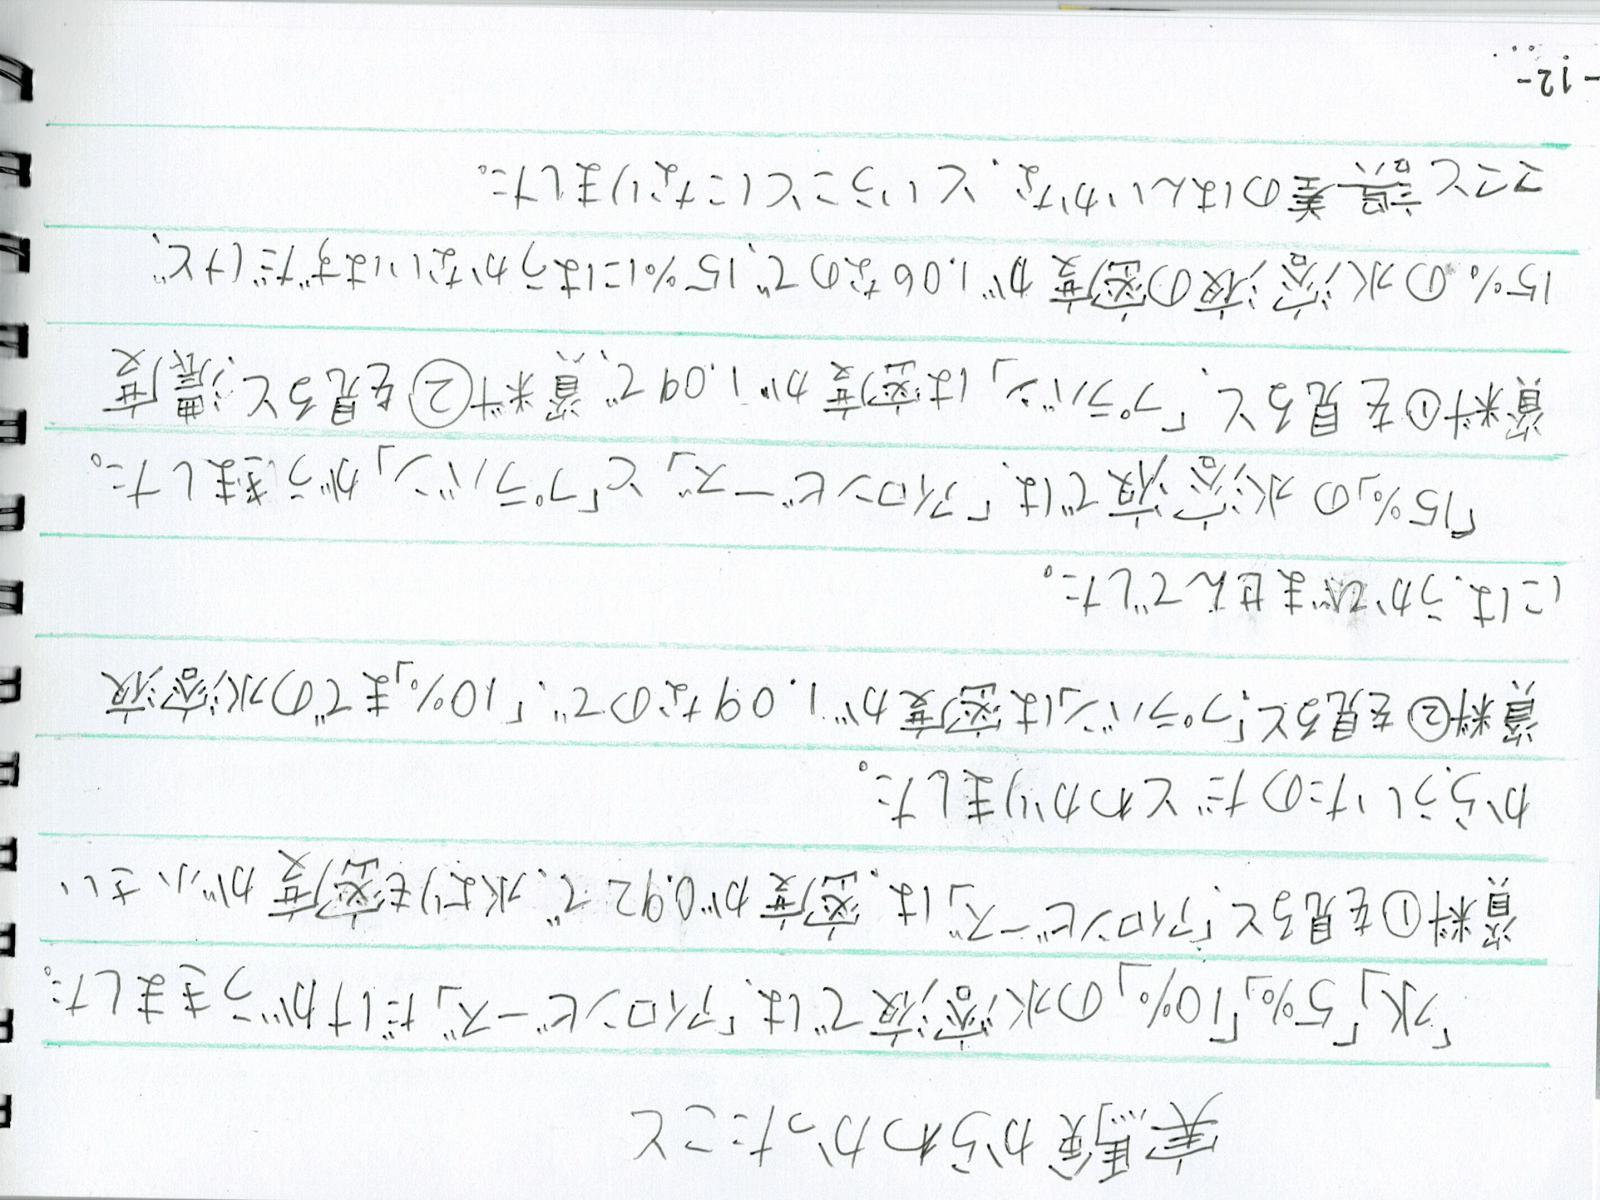 実験からわかったこと
「水」「5%」「10%」の水溶液では、「アイロンビーズ」だけがうきました。
資料①を見ると、「アイロンビーズ」は、密度が0.92で、水よりも密度が小さい
から、ういたのだとわかりました。
資料②を見ると、「プラバン」は密度が1.09なので、「10%」までの水溶液
には、うかびませんでした。
「15%」の水溶液では、「アイロンビーズ」と「プラバン」がうきました。
資料①を見ると、「プラバン」は密度が1.09で、資料②を見ると、濃度
15%の水溶液の密度が1.06なので、15%にはうかないはずだけど、
ここと誤差のはんいかな、ということになりました。
-12-